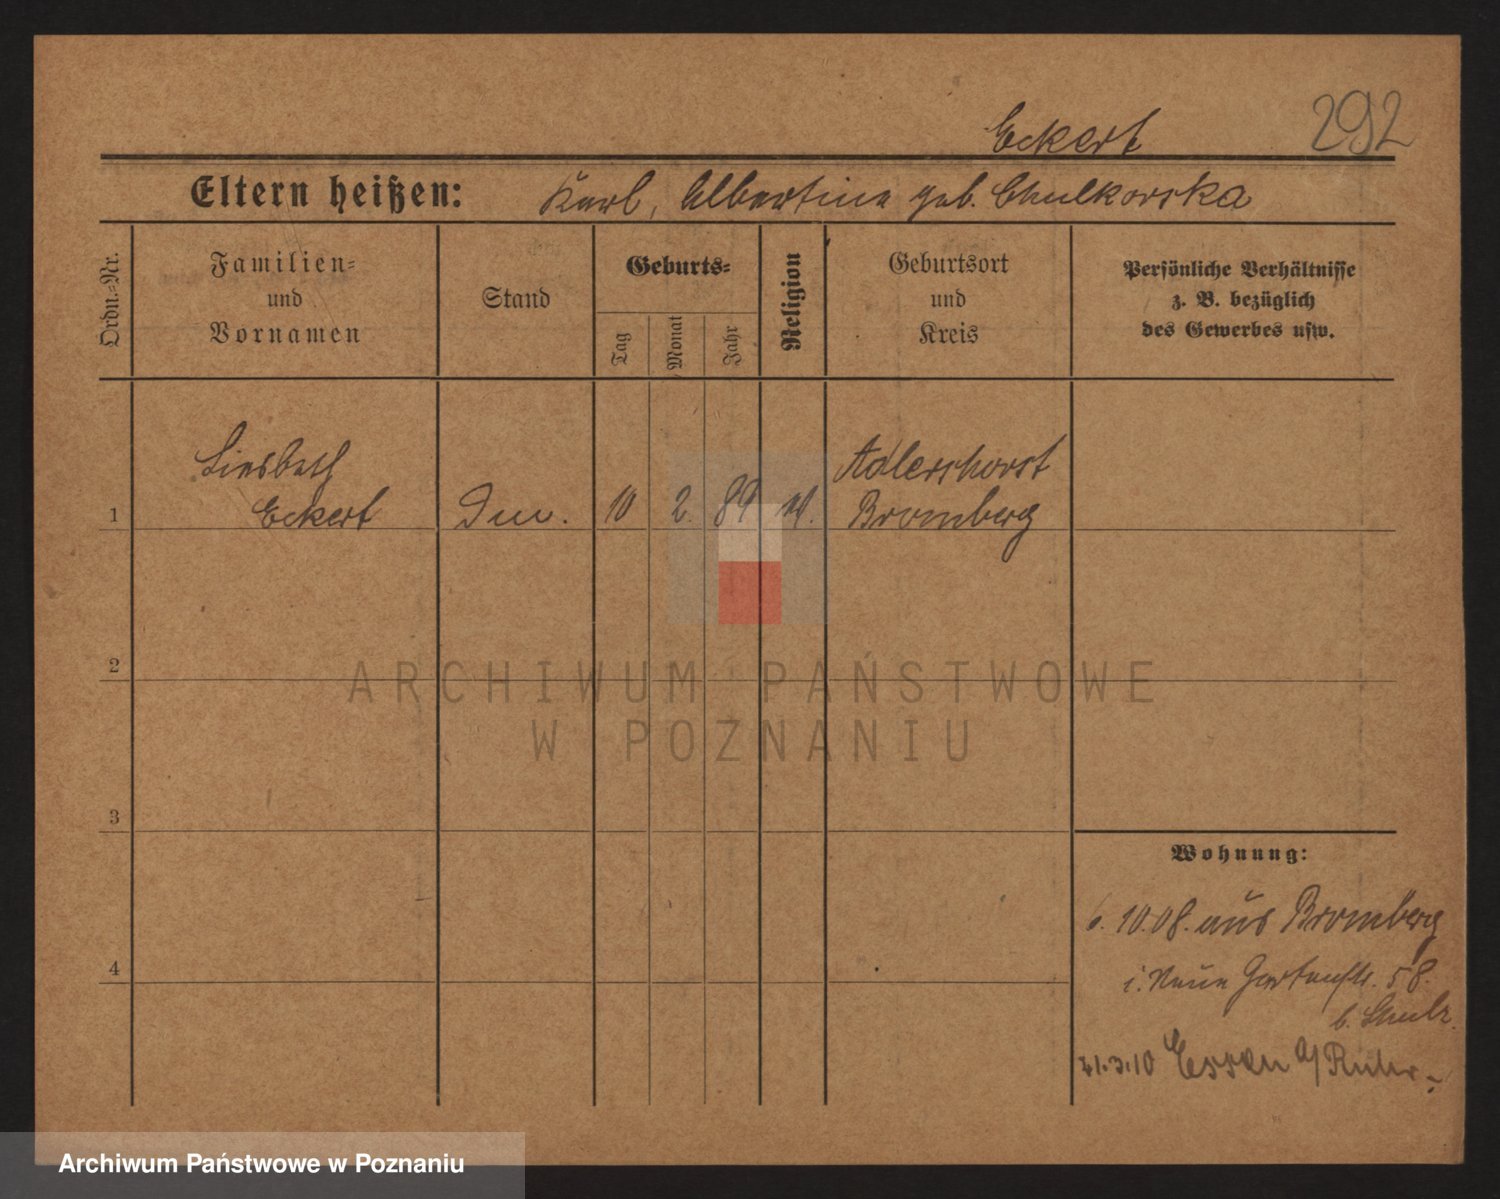 292
Eckert
Eltern heißen: Karl, Albertine geb. Chulkorska
Ordn.-Nr.
Familien-
und
Vornamen
Stand
Geburts-
Tag
Monat
Jahr
Religion
Geburtsort
und
Kreis
Persönliche Verhältnisse
z. B. bezüglich
des Gewerbes usw.
Liesbeth Adlershorst
1 Eckert 10 2. 89 Bromberg
2
ARCHIWUM PAŃSTWOWE
W POZNANIU
3
Wohnung:
6. 10.08. aus Bromberg
4
i. Neue Gartenstr. 58.
b. Schulz.
31.3.10 Essen a/Ruhr.
Archiwum Państwowe w Poznaniu